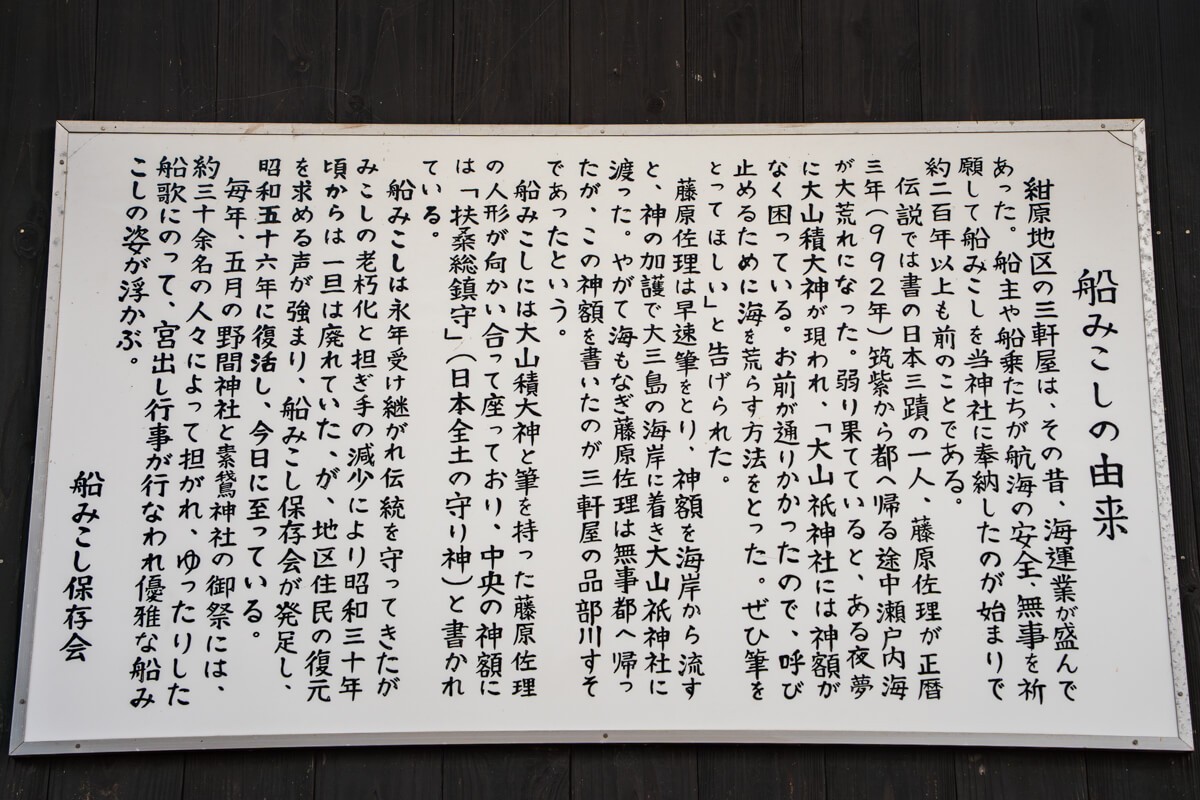 船みこしの由来
紺原地区の三軒屋は、その昔、海運業が盛んで
あった。船主や船乗たちが航海の安全、無事を祈
願して船みこしを当神社に奉納したのが始まりで
約二百年以上も前のことである。
伝説では書の日本三蹟の一人、藤原佐理が正暦
三年(992年)筑紫から都へ帰る途中瀬戸内海
が大荒れになった。弱り果てていると、ある夜夢
に大山積大神が現われ、「大山祇神社には神額が
なく困っている。お前が通りかかったので、呼び
止めるために海を荒らす方法をとった。ぜひ筆を
とってほしい」と告げられた。
藤原佐理は早速筆をとり、神額を海岸から流す
と、神の加護で大三島の海岸に着き大山祇神社に
渡った。やがて海もなぎ藤原佐理は無事都へ帰っ
たが、この神額を書いたのが三軒屋の品部川すそ
であったという。
船みこしには大山積大神と筆を持った藤原佐理
の人形が向かい合って座っており、中央の神額に
は「扶桑総鎮守」(日本全土の守り神)と書かれ
ている。
船みこしは永年受け継がれ伝統を守ってきたが
みこしの老朽化と担ぎ手の減少により昭和三十年
頃からは一旦は廃れていた、が、地区住民の復元
を求める声が強まり、船みこし保存会が発足し、
昭和五十六年に復活し、今日に至っている。
毎年、五月の野間神社と素鵞神社の御祭には、
約三十余名の人々によって担がれ、ゆったりした
船歌にのって、宮出し行事が行なわれ優雅な船み
こしの姿が浮かぶ。
船みこし保存会